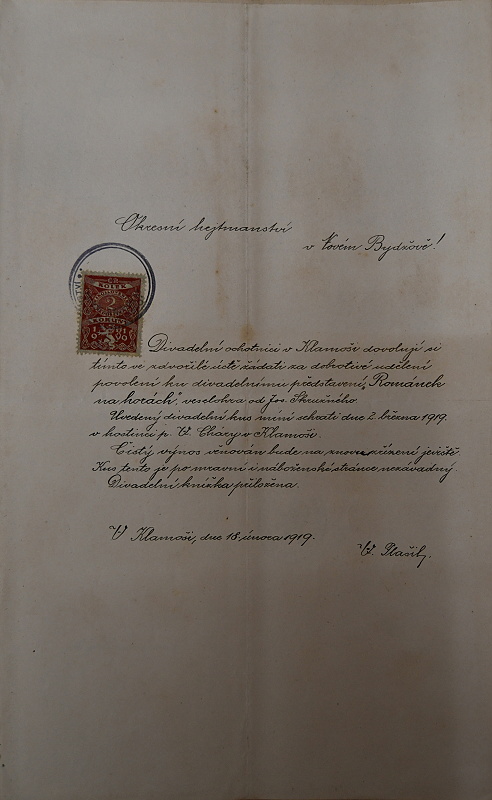 Okresní hejtmanství
v Novém Bydžově!
KOLEK
2
KORUNY
1919
Divadelní ochotníci v Klamoši dovolují si
tímto ve zdvořilé úctě žádati za dobrotivé udělení
povolení ku divadelnímu představení „Románek
na horách", veselohra od Jos. Skružného.
Uvedený divadelní kus míní sehrati dne 2. března 1919.
v hostinci p. V. Cháry v Klamoši.
Čistý výnos věnován bude na znovuzřízení jeviště.
Kus tento je po mravní i náboženské stránce nezávadný.
Divadelní knížka přiložena.
V Klamoši, dne 18. února 1919.
V. Plašil,